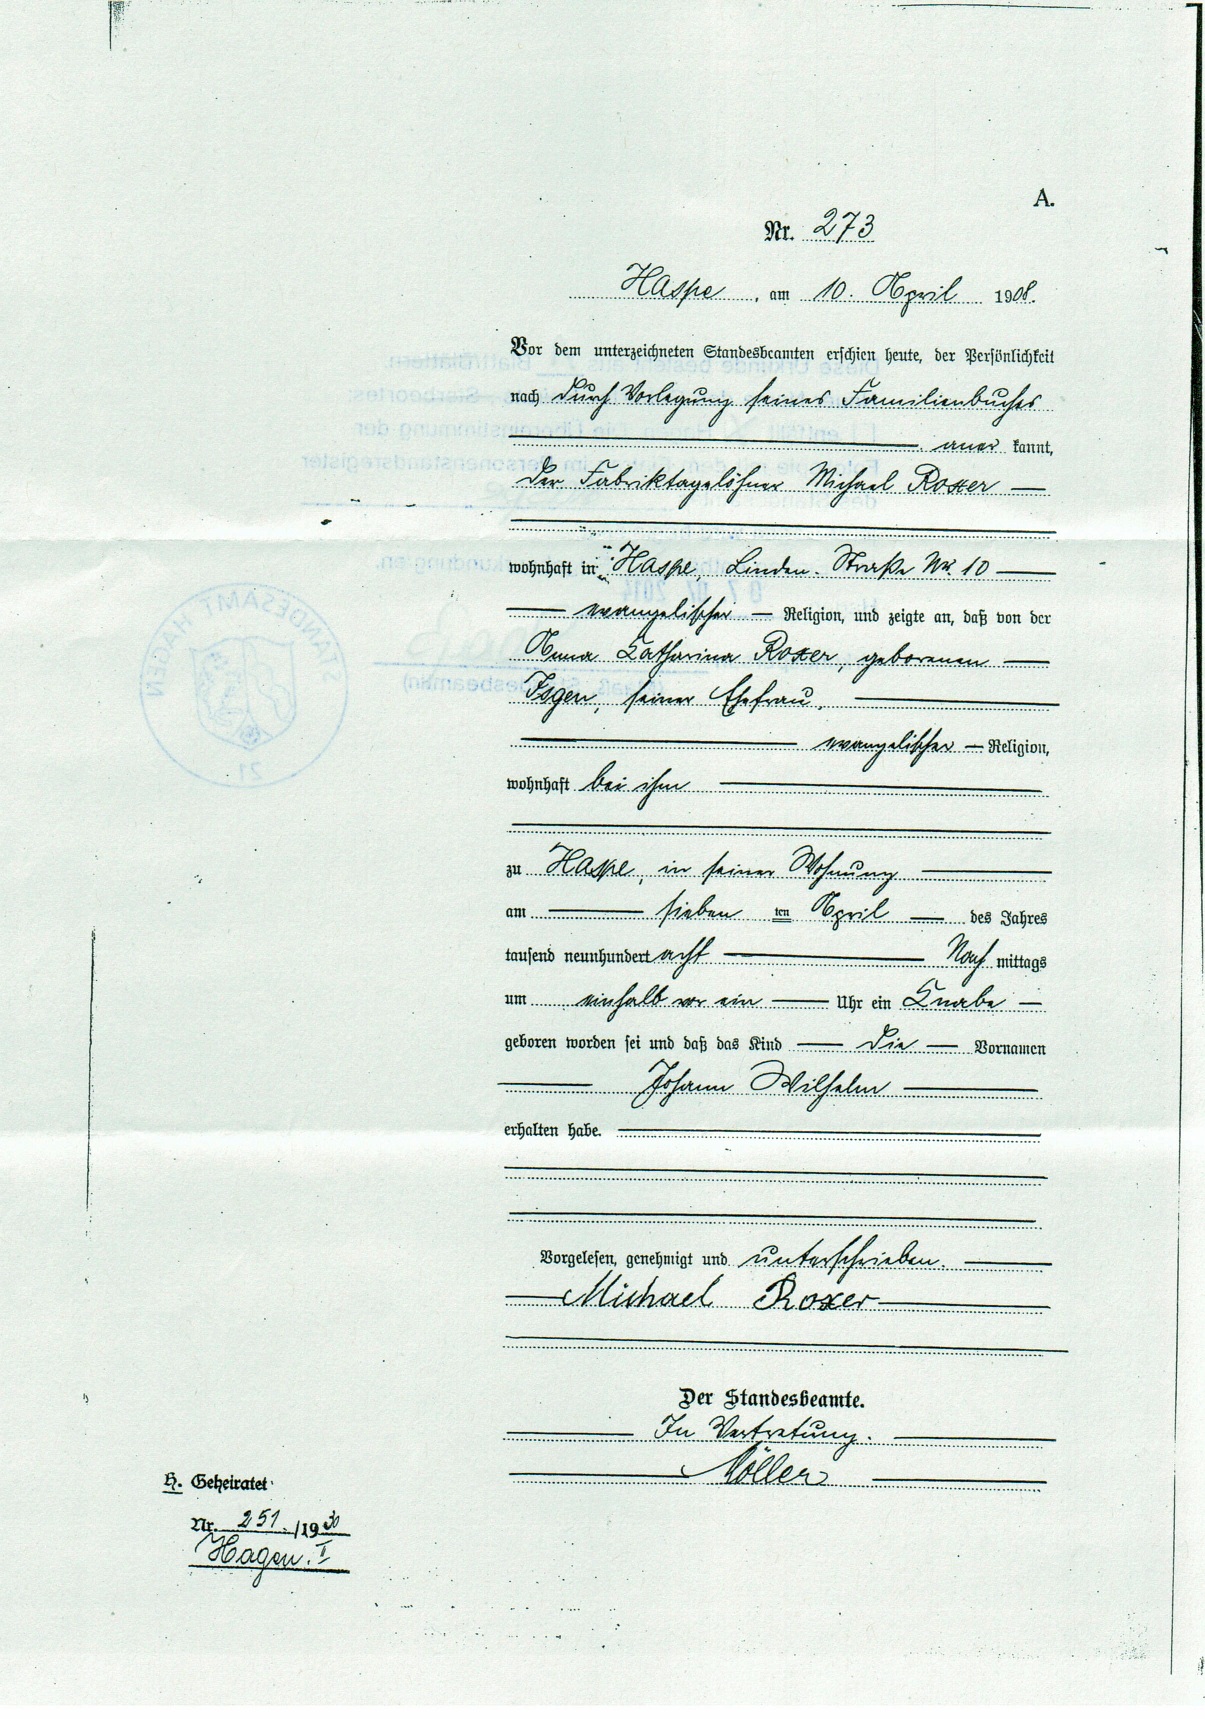 A.
Nr. 273
Haspe, am 10. April 1908.
Vor dem unterzeichneten Standesbeamten erschien heute, der Persönlichkeit
nach durch Vorlegung seines Familienbuches
aner kannt,
der Fabriktagelöhner Michael Roxer
wohnhaft in Haspe, Linden-Straße Nr. 10
evangelischer Religion, und zeigte an, daß von der
Anna Katharina Roxer, geborenen
Isgen, seiner Ehefrau,
evangelischer Religion,
wohnhaft bei ihm
zu Haspe, in seiner Wohnung
am sieben ten April des Jahres
tausend neunhundert acht Nach mittags
um einhalb vor ein Uhr ein Knabe
geboren worden sei und daß das Kind die Vornamen
Johann Wilhelm
erhalten habe.
Vorgelesen, genehmigt und unterschrieben.
Michael Roxer
Der Standesbeamte.
In Vertretung.
Möller
H. Geheiratet
Nr. 251. /1930
Hagen. I
STANDESAMT HAGEN
21
Diese Urkunde besteht aus Blatt/Blättern.
07. 07. 2014